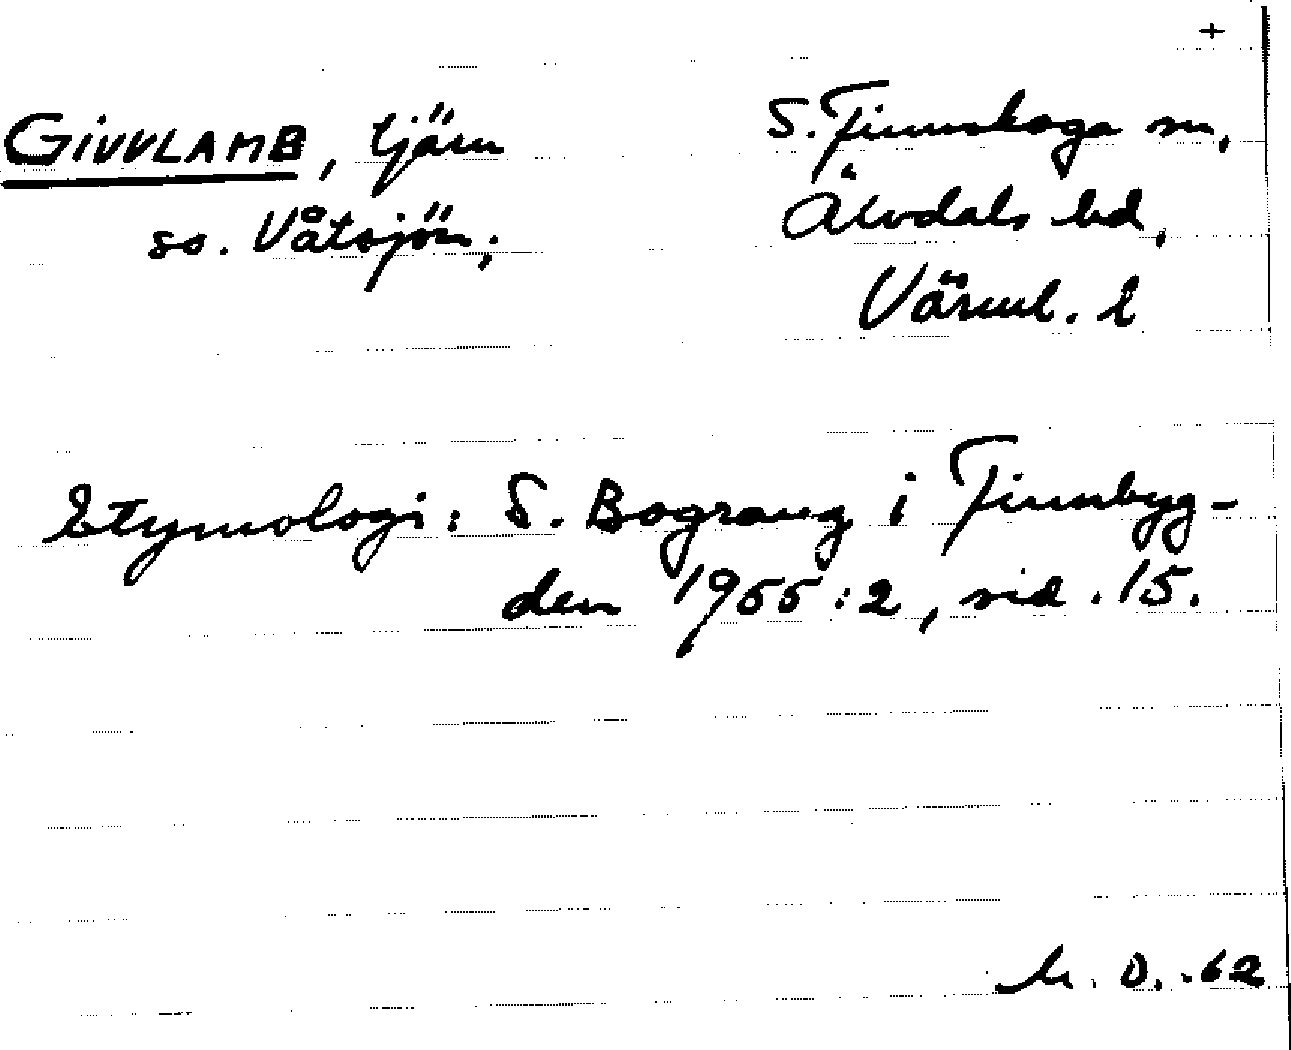 +
GIVVLAMB, tjärn
S. Finnskoga sn,
so. Våtsjön;
Älvdals hd,
Värml. l
Etymologi: S. Bograng i Finnbyg-
den 1955:2, sid. 15.
D. .62